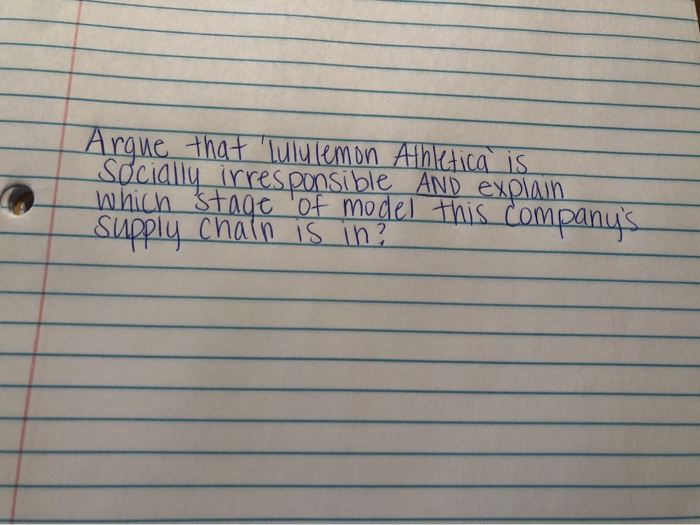 Argue that 'lululemon Athletica' is
socially irresponsible AND explain
which stage of model this company's
supply chain is in?